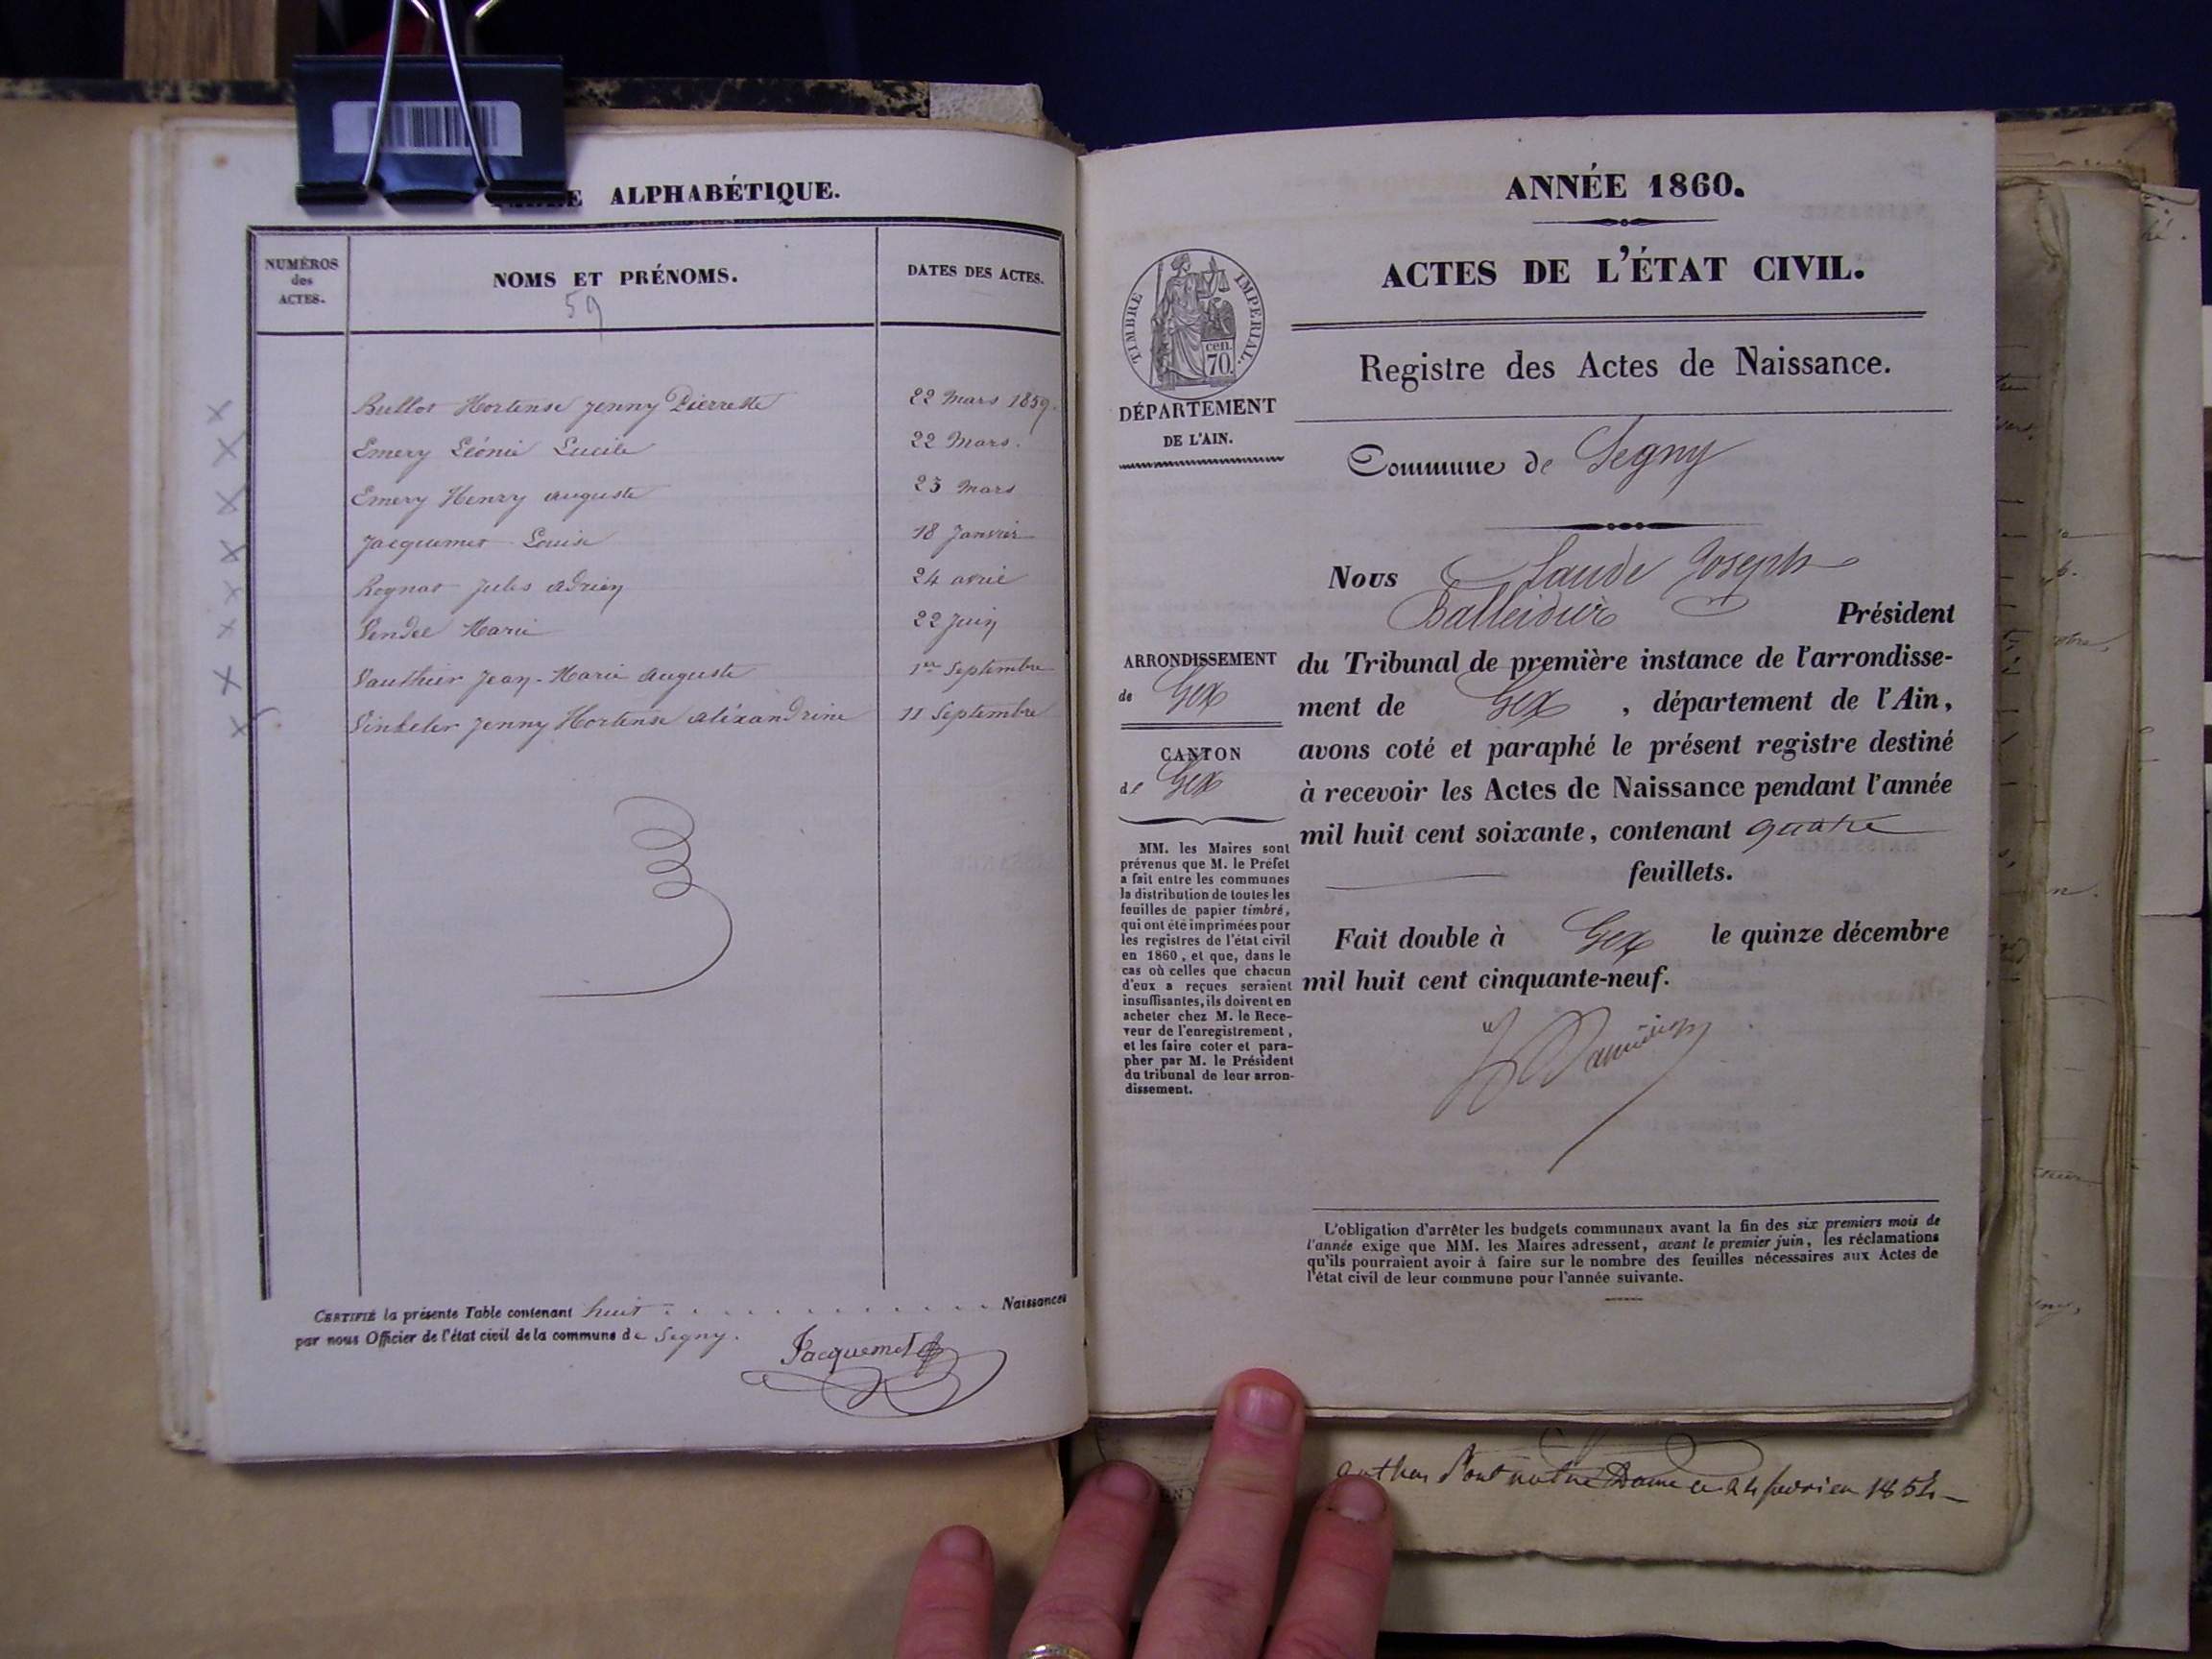 ALPHABÉTIQUE.
NUMÉROS
des
ACTES.
NOMS ET PRÉNOMS.
DATES DES ACTES.
59
Bullot Hortense Jenny Pierrette 22 Mars 1859.
Emery Léonie Lucile 22 Mars.
Emery Henry auguste 23 Mars
Jacquemet Louise 18 Janvier
Rognat Jules adrien 24 avril
Vendel Marie 22 Juin
Vauthier Jean-Marie auguste 1er Septembre
Jenny Hortense aléxandrine 11 Septembre
CERTIFIÉ la présente Table contenant huit . . . . . . . . . . . . Naissances
par nous Officier de l'état civil de la commune de Segny.
Jacquemet
ANNÉE 1860.
ACTES DE L'ÉTAT CIVIL.
TIMBRE IMPÉRIAL.
cen.
70.
Registre des Actes de Naissance.
DÉPARTEMENT
DE L'AIN.
Commune de Segny
Nous Claude Joseph
Balleidier Président
du Tribunal de première instance de l'arrondisse-
ment de Gex , département de l'Ain,
avons coté et paraphé le présent registre destiné
à recevoir les Actes de Naissance pendant l'année
mil huit cent soixante, contenant quatre
feuillets.
Fait double à Gex le quinze décembre
mil huit cent cinquante-neuf.
ARRONDISSEMENT
de Gex
CANTON
de Gex
MM. les Maires sont
prévenus que M. le Préfet
a fait entre les communes
la distribution de toutes les
feuilles de papier timbré,
qui ont été imprimées pour
les registres de l'état civil
en 1860, et que, dans le
cas où celles que chacun
d'eux a reçues seraient
insuffisantes, ils doivent en
acheter chez M. le Rece-
veur de l'enregistrement,
et les faire coter et para-
pher par M. le Président
du tribunal de leur arron-
dissement.
L'obligation d'arrêter les budgets communaux avant la fin des six premiers mois de
l'année exige que MM. les Maires adressent, avant le premier juin, les réclamations
qu'ils pourraient avoir à faire sur le nombre des feuilles nécessaires aux Actes de
l'état civil de leur commune pour l'année suivante.